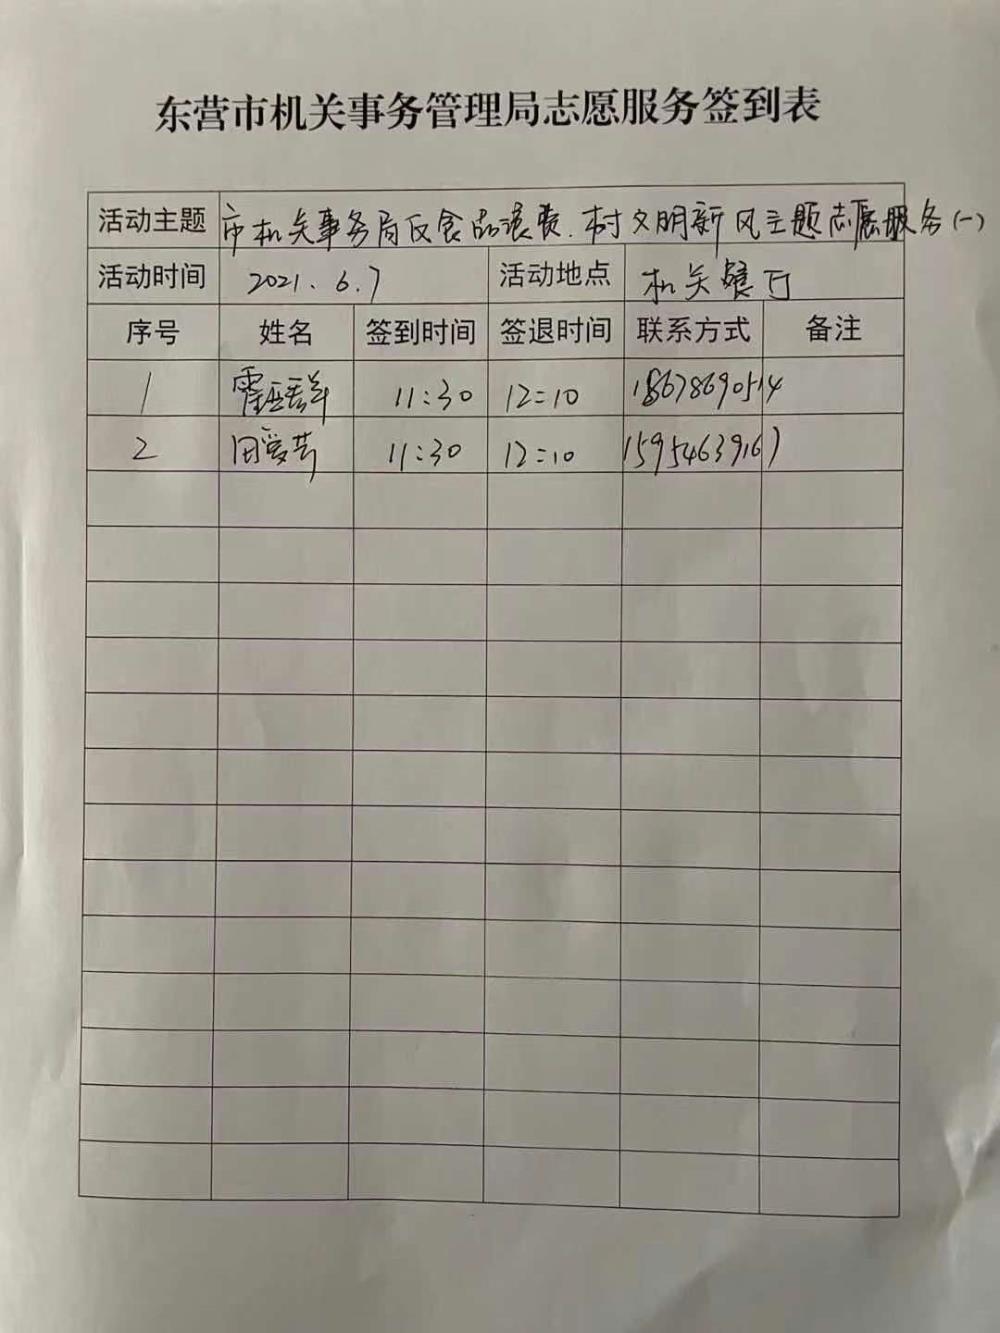 东营市机关事务管理局志愿服务签到表
活动主题 市机关事务局反食品浪费.树文明新风主题志愿服务(一)
活动时间 2021.6.7 活动地点 机关餐厅
序号 姓名 签到时间 签退时间 联系方式 备注
1 11:30 12:10 18678690514
2 田爱芳 11:30 12:10 15954639167